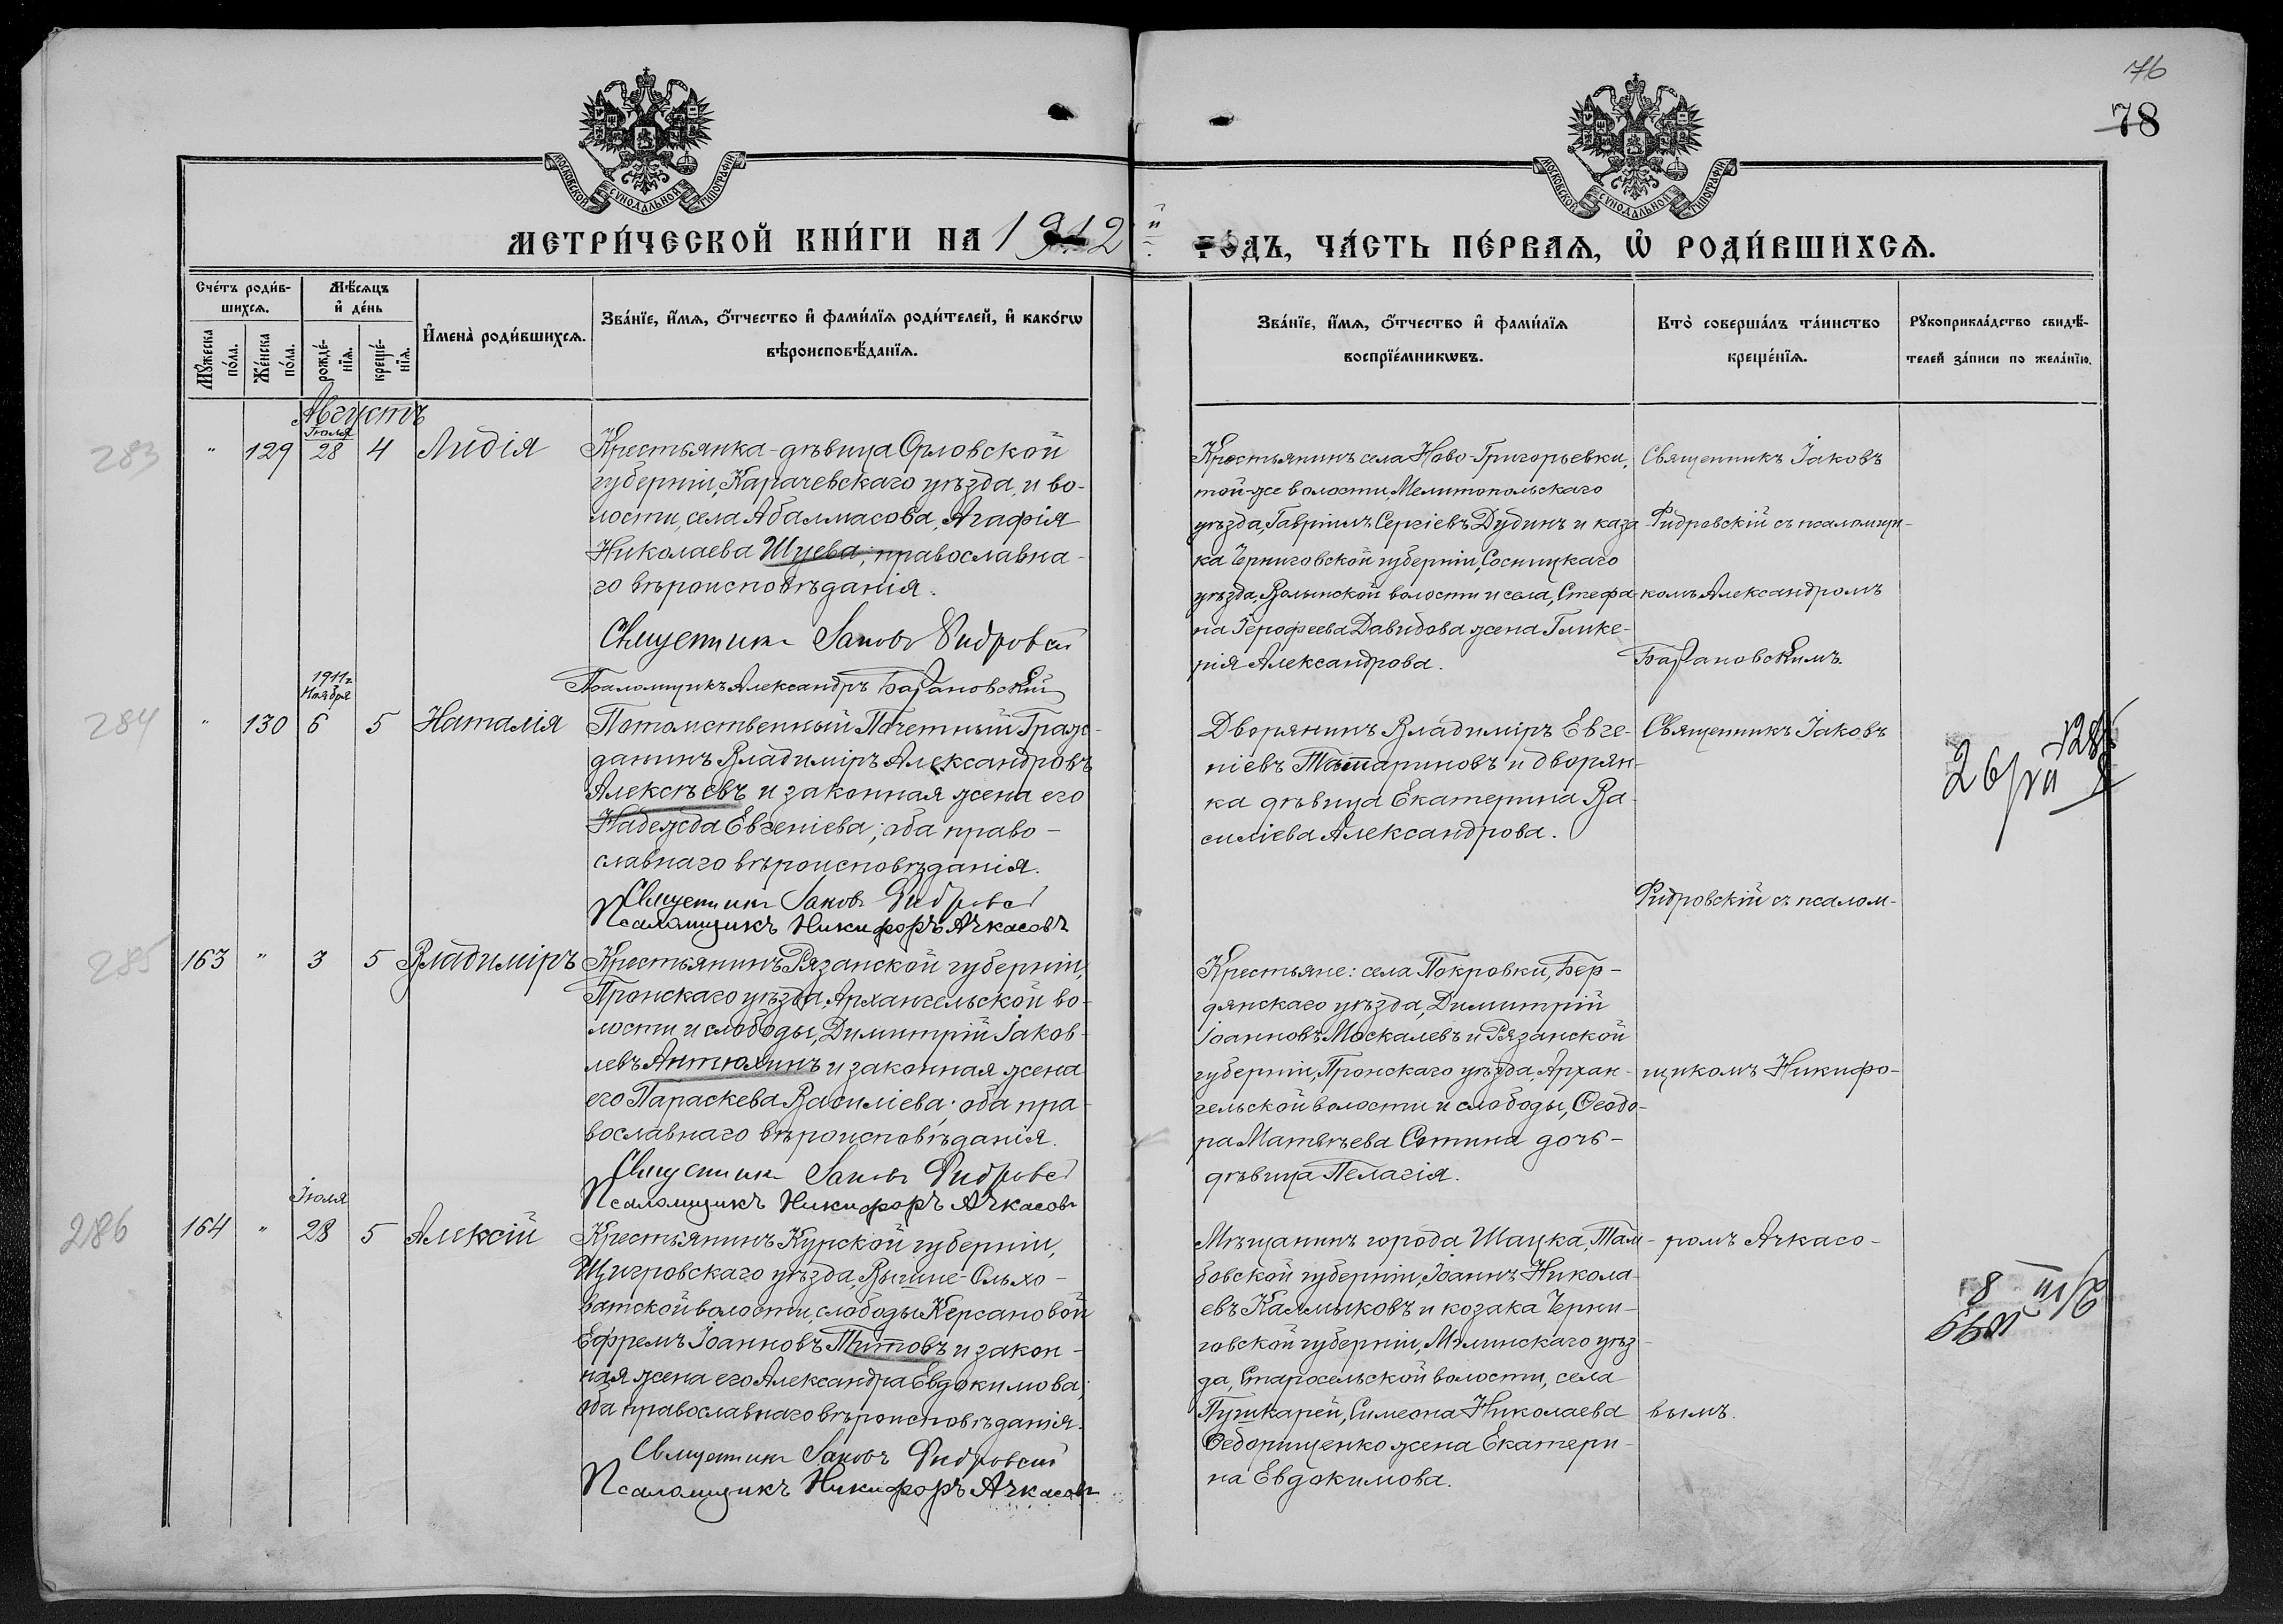 76
78
МОСКОВСКОЙ СѴНОДАЛЬНОЙ ТИПОГРАФІИ
МОСКОВСКОЙ СѴНОДАЛЬНОЙ ТИПОГРАФІИ
МЕТРИ́ЧЕСКОЙ КНИ́ГИ НА 1912 й ГО́ДЪ, ЧА́СТЬ ПЕ́РВАѦ, Ѡ҆ РОДИ́ВШИХСѦ.
Сче́тъ роди́в-
шихсѧ.
Мꙋ́жеска по́ла.
Же́нска по́ла.
Мѣ́сѧцъ
и҆ де́нь
рожде́-нїѧ.
креще́-нїѧ.
И҆мена̀ роди́вшихсѧ.
Зва́нїе, и҆́мѧ, ѻ҆́тчество и҆ фами́лїѧ роди́телей, и҆ како́гѡ
вѣроисповѣ́данїѧ.
Зва́нїе, и҆́мѧ, ѻ҆́тчество и҆ фами́лїѧ
воспрїе́мникѡвъ.
Кто̀ соверша́лъ та́инство
креще́нїѧ.
Рꙋкоприкла́дство свидѣ́-
телей за́писи по жела́нїю.
Августъ
283
" 129 Іюля 28 4 Лидія
Крестьянка-дѣвица Орловской
губерніи, Карачевскаго уѣзда, и во-
лости, села Абалмасова, Агафія
Николаева Шуева; православна-
го вѣроисповѣданія.
Священникъ Іаковъ Ридровскій
Псаломщикъ Александръ Барановскій
Крестьянинъ села Ново-Григорьевки,
той-же волости, Мелитопольскаго
уѣзда, Гавріилъ Сергіевъ Дудинъ и каза
ка Черниговской губерніи, Сосницкаго
уѣзда, Волынской волости и села, Стефа-
на Іерофеева Давидова жена Глике-
рія Александрова.
Священникъ Іаковъ
Ридровскій съ псаломщи-
комъ Александромъ
Барановскимъ.
284
" 130 1911 г. Ноября 6 5 Наталія
Потомственный Почетный Граж-
данинъ Владиміръ Александровъ
Алексѣевъ и законная жена его
Надежда Евгеніева; оба право-
славнаго вѣроисповѣданія.
Священникъ Іаковъ Ридровскій
Псаломщикъ Никифоръ Ачкасовъ
Дворянинъ Владиміръ Евге-
ніевъ Татариновъ и дворян-
ка дѣвица Екатерина Ва-
силіева Александрова.
Священникъ Іаковъ
Ридровскій съ псалом-
285
163 " 3 5 Владиміръ
Крестьянинъ Рязанской губерніи,
Пронскаго уѣзда, Архангельской во-
лости и слободы, Димитрій Іаков-
левъ Антюхинъ и законная жена
его Параскева Василіева; оба пра-
вославнаго вѣроисповѣданія.
Священникъ Іаковъ Ридровскій
Псаломщикъ Никифоръ Ачкасовъ
Крестьяне: села Покровки, Бер-
дянскаго уѣзда, Димитрій
Іоанновъ Москалевъ и Рязанской
губерніи, Пронскаго уѣзда, Архан-
гельской волости и слободы, Ѳеодо-
ра Матвѣева Сотина дочь-
дѣвица Пелагія.
щикомъ Никифо-
286
164 " Іюля 28 5 Алексій
Крестьянинъ Курской губерніи,
Щигровскаго уѣзда, Выше-Ольхо-
ватской волости, слободы Керсановой
Ефремъ Іоанновъ Титовъ и закон-
ная жена его Александра Евдокимова;
оба православнаго вѣроисповѣданія.
Священникъ Іаковъ Ридровскій
Псаломщикъ Никифоръ Ачкасовъ
Мѣщанинъ города Шацка, Там-
бовской губерніи, Іоаннъ Никола-
евъ Калмыковъ и козака Черни-
говской губерніи, Мглинскаго уѣз-
да, Старосельской волости, села
Пушкарей, Симеона Николаева
Ѳедорищенко жена Екатери-
на Евдокимова.
ромъ Ачкасо-
вымъ.